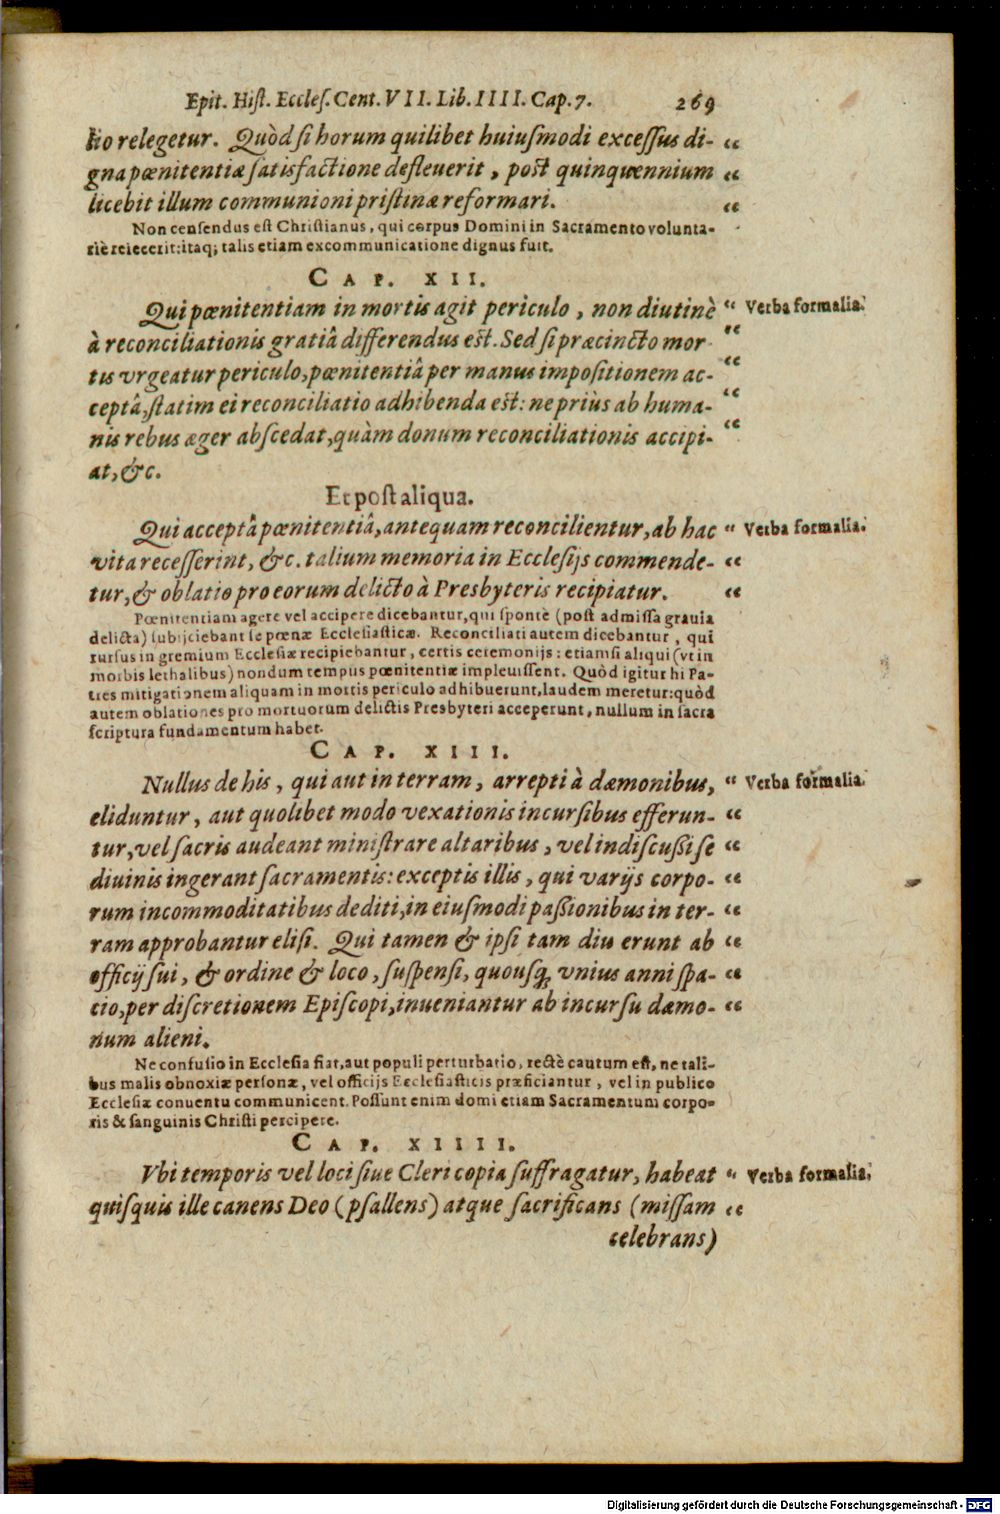 Epit. Hist. Eccles. Cent. VII. Lib. IIII. Cap. 7. 269
lio relegetur. Quòd si horum quilibet huiusmodi excessus di- “
gna pœnitentiæ satisfactione defleuerit, post quinquennium “
licebit illum communioni pristinæ reformari. “
Non censendus est Christianus, qui corpus Domini in Sacramento volunta-
riè reiecerit: itaq; talis etiam excommunicatione dignus fuit.
CAP. XII.
Qui pœnitentiam in mortis agit periculo, non diutinè “ Verba formalia.
à reconciliationis gratiâ differendus est. Sed si præcincto mor “
tis vrgeatur periculo, pœnitentiâ per manus impositionem ac- “
ceptâ, statim ei reconciliatio adhibenda est: ne priùs ab huma- “
nis rebus æger abscedat, quàm donum reconciliationis accipi- “
at, &c.
Et post aliqua.
Qui acceptâ pœnitentiâ, antequam reconcilientur, ab hac “ Verba formalia.
vita recesserint, &c. talium memoria in Ecclesijs commende- “
tur, & oblatio pro eorum delicto à Presbyteris recipiatur. “
Pœnitentiam agere vel accipere dicebantur, qui spontè (post admissa grauia
delicta) subijciebant se pœnæ Ecclesiasticæ. Reconciliati autem dicebantur, qui
rursus in gremium Ecclesiæ recipiebantur, certis ceremonijs: etiamsi aliqui (vt in
morbis lethalibus) nondum tempus pœnitentiæ impleuissent. Quòd igitur hi Pa-
tres mitigationem aliquam in mortis periculo adhibuerunt, laudem meretur: quòd
autem oblationes pro mortuorum delictis Presbyteri acceperunt, nullum in sacra
scriptura fundamentum habet.
CAP. XIII.
Nullus de his, qui aut in terram, arrepti à dæmonibus, “ Verba formalia.
eliduntur, aut quolibet modo vexationis incursibus efferun- “
tur, vel sacris audeant ministrare altaribus, vel indiscussi se “
diuinis ingerant sacramentis: exceptis illis, qui varijs corpo- “
rum incommoditatibus dediti, in eiusmodi passionibus in ter- “
ram approbantur elisi. Qui tamen & ipsi tam diu erunt ab “
officij sui, & ordine & loco, suspensi, quousq; vnius anni spa- “
cio, per discretionem Episcopi, inueniantur ab incursu dæmo- “
num alieni.
Ne confusio in Ecclesia fiat, aut populi perturbatio, rectè cautum est, ne tali-
bus malis obnoxiæ personæ, vel officijs Ecclesiasticis præficiantur, vel in publico
Ecclesiæ conuentu communicent. Possunt enim domi etiam Sacramentum corpo-
ris & sanguinis Christi percipere.
CAP. XIIII.
Vbi temporis vel loci siue Cleri copia suffragatur, habeat “ Verba formalia.
quisquis ille canens Deo (psallens) atque sacrificans (missam “
celebrans)
Digitalisierung gefördert durch die Deutsche Forschungsgemeinschaft - DFG